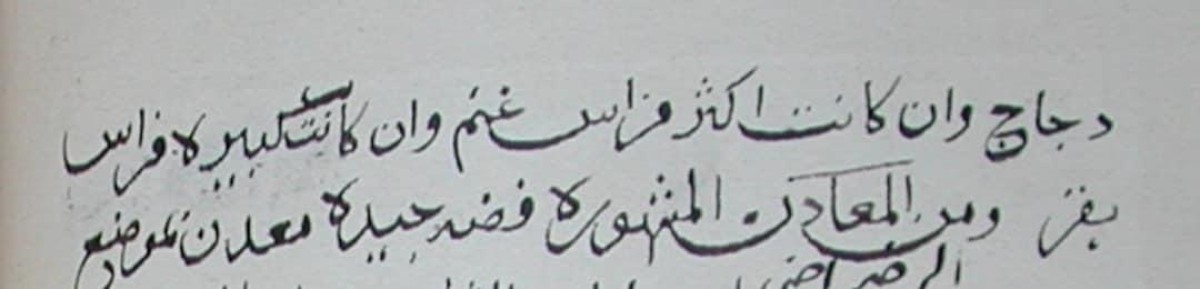 دجاج وان كانت اكثر فراس غنم وان كانت كبيره فراس
بقر ومن المعادن المشهوره فضه جيده معدن بموضع